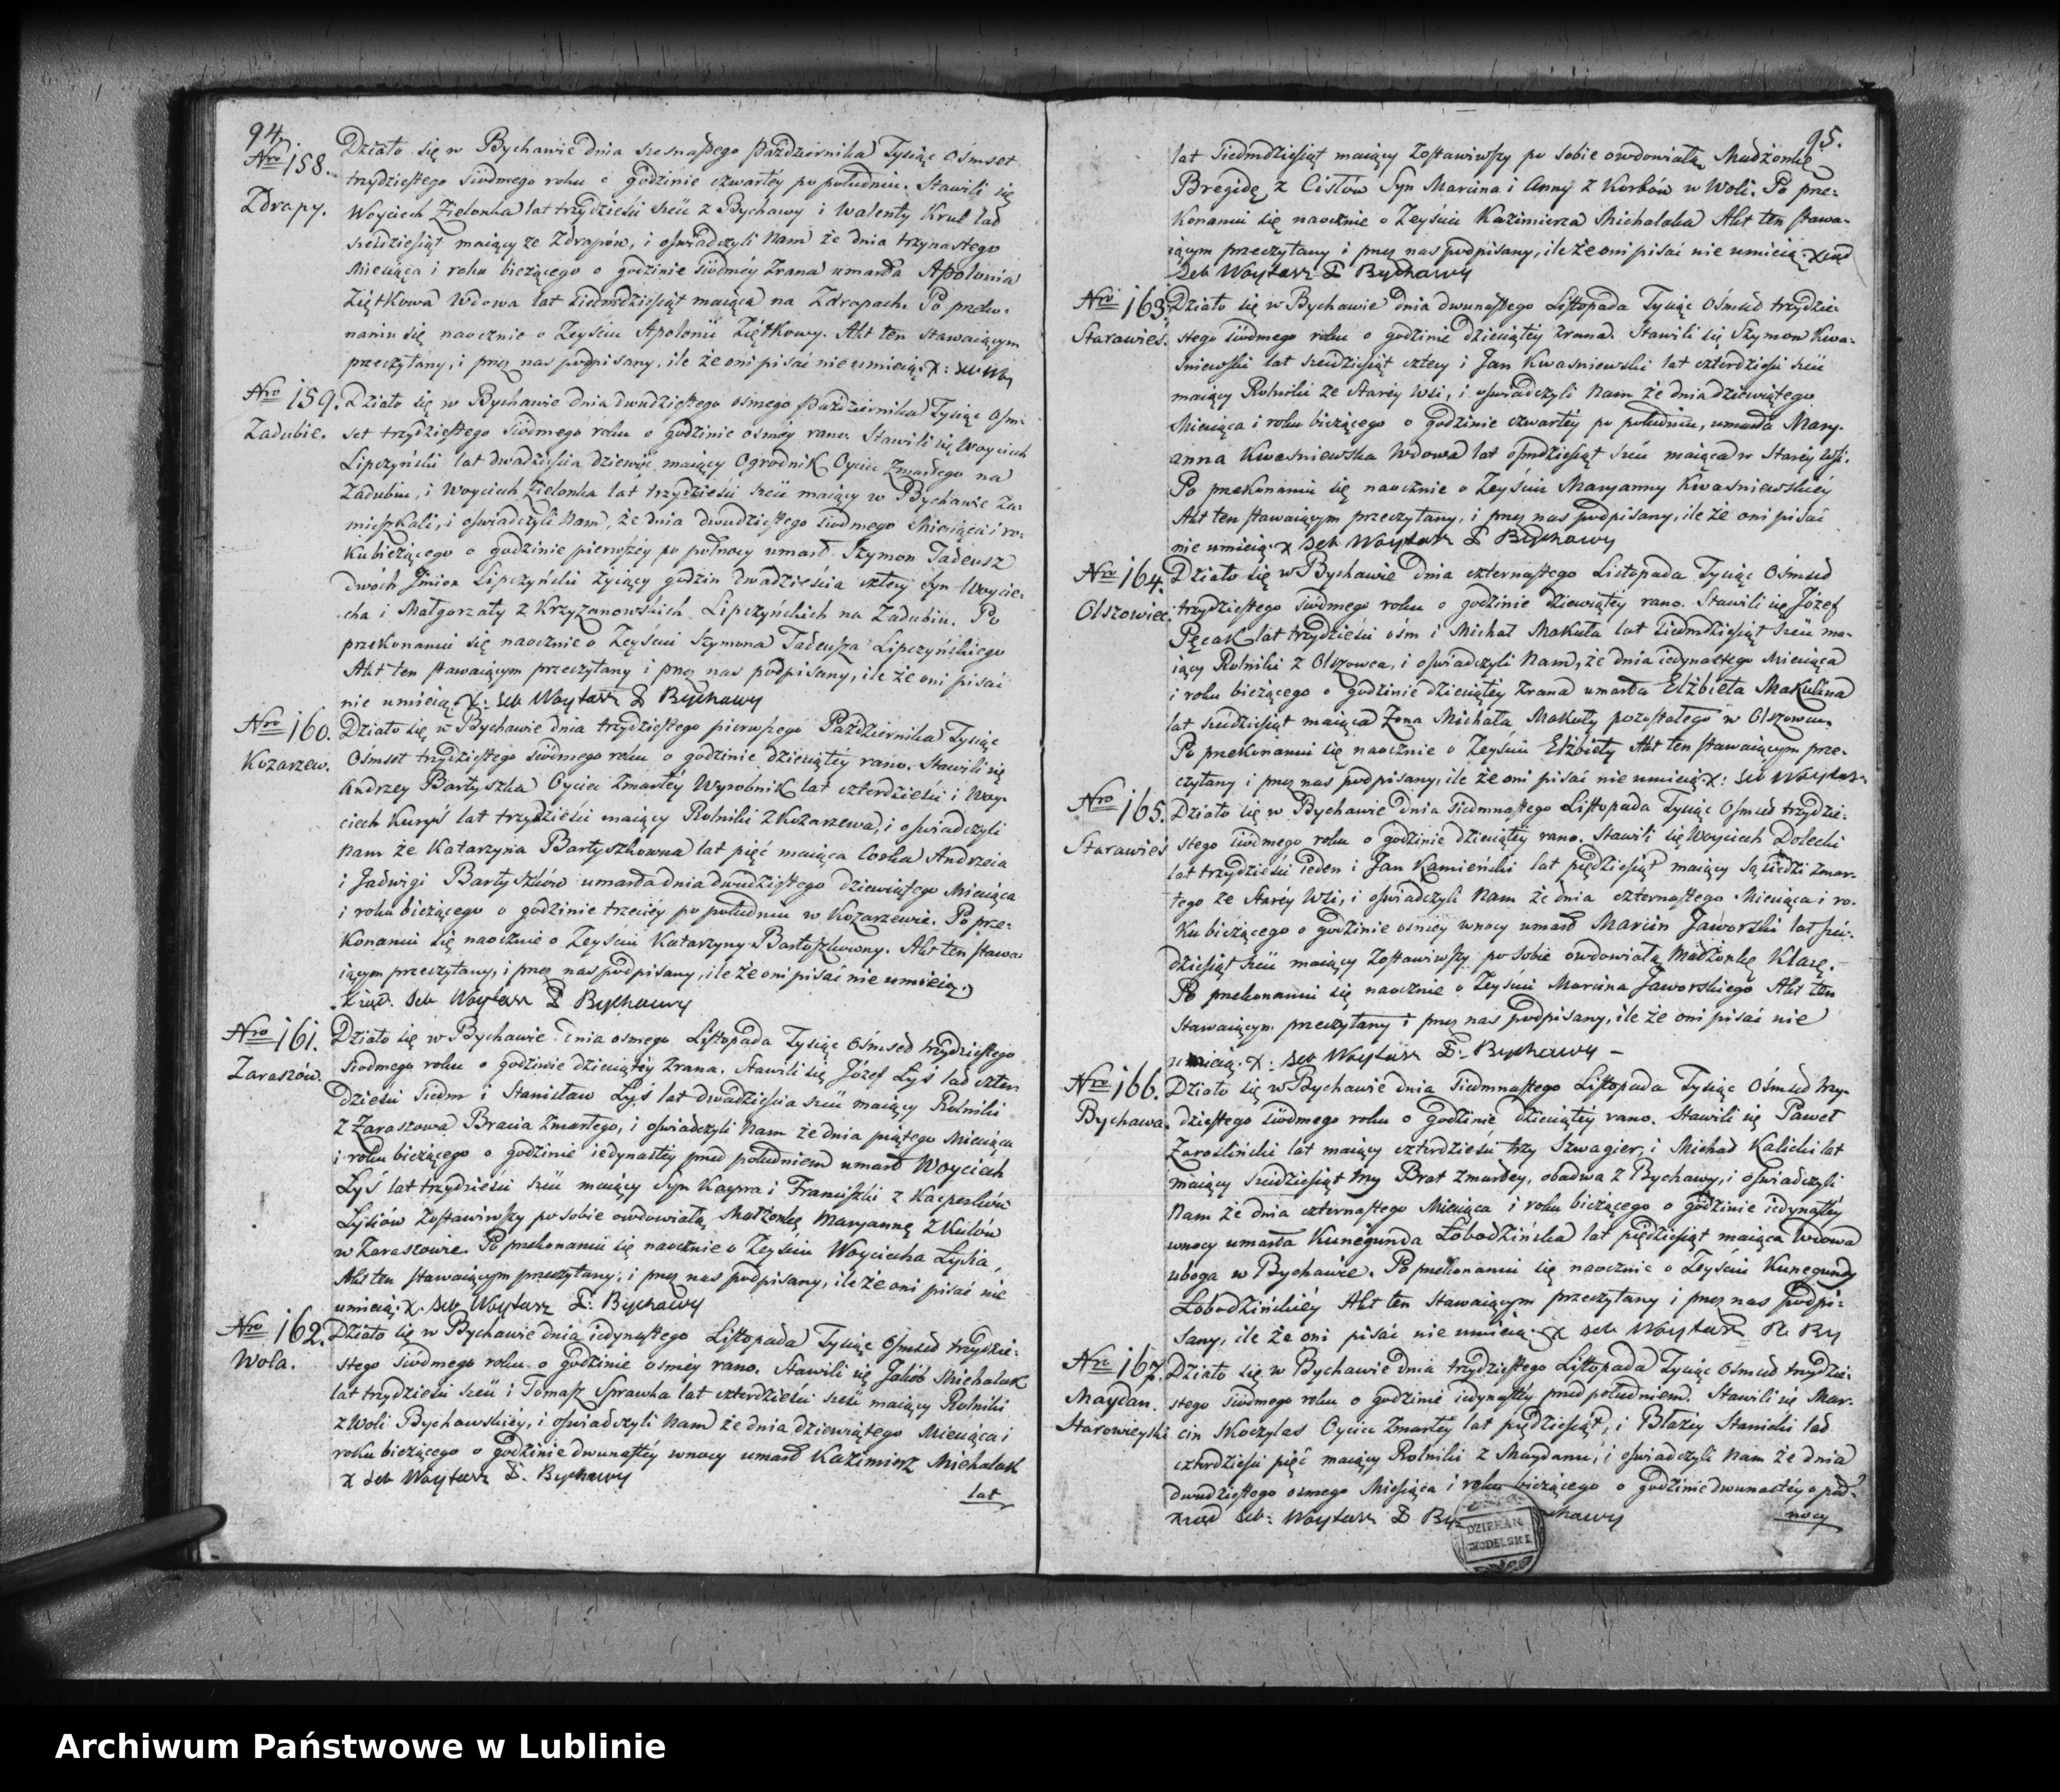 94.
Nro 158.
Zdrapy.
Działo się w Bychawie dnia szesnastego Października Tysiąc Ośmset
trzydziestego siódmego roku o godzinie czwartéy po południu. Stawili się
Woyciech Zielonka lat trzydzieści sześć z Bychawy i Walenty Krul lat
sześdziesiąt maiący ze Zdrapów, i oświadczyli Nam że dnia trzynastego
Miesiąca i roku bieżącego o godzinie siódméy zrana umarła Apolonia
Ziętkowa Wdowa lat siedmdziesiąt maiąca na Zdrapach. Po przeko-
naniu się naocznie o Zeyściu Apolonii Ziętkowy. Akt ten stawaiącym
przeczytany, i przez nas podpisany, ile że oni pisać nie umieią. X:
Nro 159.
Zadubie.
Działo się w Bychawie dnia dwudziestego osmego Października Tysiąc Ośm-
set trzydziestego siódmego roku o godzinie osméy rano. Stawili się Woyciech
Lipczyński lat dwadzieścia dziewięć maiący Ogrodnik Oyciec Zmarłego na
Zadubiu, i Woyciech Zielonka lat trzydzieści sześć maiący w Bychawie za-
mieszkali, i oświadczyli Nam, że dnia dwudziestego siódmego Miesiąca i ro-
ku bieżącego o godzinie pierwszéy po północy umarł Szymon Tadeusz
dwóch Jmion Lipczyński żyiący godzin dwadzieścia cztery Syn Woycie-
cha i Małgorzaty z Krzyżanowskich Lipczyńskich na Zadubiu. Po
przekonaniu się naocznie o Zeyściu Szymona Tadeusza Lipczyńskiego
Akt ten stawaiącym przeczytany i przez nas podpisany, ile że oni pisać
nie umieią. X: Seb Woytasz P Bychawy
Nro 160.
Kozarzew.
Działo się w Bychawie dnia trzydziestego pierwszego Października Tysiąc
Ośmset trzydziestego siódmego roku o godzinie dziesiątéy rano. Stawili się
Andrzey Bartyszka Oyciec Zmarłéy Wyrobnik lat czterdzieści i Woy-
ciech Kuryś lat trzydzieści maiący Rolniki z Kozarzewa, i oświadczyli
Nam że Katarzyna Bartyszkowna lat pięć maiąca Corka Andrzeia
i Jadwigi Bartyszków umarła dnia dwudziestego dziewiątego Miesiąca
i roku bieżącego o godzinie trzeciéy po południu w Kozarzewie. Po prze-
konaniu się naocznie o Zeyściu Katarzyny Bartoszkowny. Akt ten stawa-
iącym przeczytany, i przez nas podpisany, ile że oni pisać nie umieią.
X: Seb Woytasz P Bychawy
Nro 161.
Zaraszów.
Działo się w Bychawie dnia osmego Listopada Tysiąc Ośmset trzydziestego
siodmego roku o godzinie dziesiątéy zrana. Stawili się Józef Łyś lat czter-
dzieści siedm i Stanisław Łyś lat dwadzieścia sześć maiący Rolniki
z Zaraszowa Bracia Zmarłego, i oświadczyli Nam że dnia piątego Miesiąca
i roku bieżącego o godzinie iedynastéy przed południem umarł Woyciech
Łyś lat trzydzieści sześć maiący Syn Kacpra i Franciszki z Kacperków
Łysiów Zostawiwszy po sobie owdowiałą Małżonkę Maryannę z Kulów
w Zaraszowie. Po przekonaniu się naocznie o Zeyściu Woyciecha Łysia,
Akt ten stawaiącym przeczytany, i przez nas podpisany, ile że oni pisać nie
umieią. X. Seb Woytasz P: Bychawy
Nro 162.
Wola.
Działo się w Bychawie dnia iedynastego Listopada Tysiąc Ośmset trzydzie-
stego siódmego roku o godzinie osméy rano. Stawili się Jakób Michalak
lat trzydzieści sześć i Tomasz Sprawka lat czterdzieści sześć maiący Rolniki
z Woli Bychawskiéy, i oświadczyli Nam że dnia dziewiątego Miesiąca i
roku bieżącego o godzinie dwunastéy wnocy umarł Kazimierz Michalak
X Seb Woytasz P. Bychawy
lat
95.
lat siedmdziesiąt maiący Zostawiwszy po sobie owdowiałą Małżonkę
Bregidę z Cisłów Syn Marcina i Anny z Korbów w Woli. Po prze-
konaniu się naocznie o Zeyściu Kazimierza Michalaka Akt ten stawa-
iącym przeczytany i przez nas podpisany, ile że oni pisać nie umieią.
Seb Woytasz P Bychawy
Nro 163.
Starawieś.
Działo się w Bychawie dnia dwunastego Listopada Tysiąc Ośmset trzydzie-
stego siódmego roku o godzinie dziesiątéy zrana. Stawili się Szymon Kwa-
śniewski lat sześdziesiąt cztery i Jan Kwaśniewski lat czterdzieści sześć
maiący Rolniki ze Staréy Wsi, i oświadczyli Nam że dnia dziewiątego
Miesiąca i roku bieżącego o godzinie czwartéy po południu, umarła Mary-
anna Kwaśniewska Wdowa lat ośmdziesiąt sześć maiąca w Staréy Wsi.
Po przekonaniu się naocznie o Zeyściu Maryanny Kwaśniewskiéy
Akt ten stawaiącym przeczytany, i przez nas podpisany, ile że oni pisać
nie umieią. X Seb Woytasz P Bychawy
Nro 164.
Olszowiec.
Działo się w Bychawie dnia czternastego Listopada Tysiąc Ośmset
trzydziestego siódmego roku o godzinie dziewiątéy rano. Stawili się Józef
Pęcak lat trzydzieści ośm i Michał Makuła lat siedmdziesiąt sześć ma-
iący Rolniki z Olszowca, i oświadczyli Nam, że dnia iedynastego Miesiąca
i roku bieżącego o godzinie dziesiątéy zrana umarła Elżbieta Makulina
lat sześdziesiąt maiąca Żona Michała Makuły pozostałego w Olszowcu.
Po przekonaniu się naocznie o Zeyściu Elżbiety Akt ten stawaiącym prze-
czytany i przez nas podpisany, ile że oni pisać nie umieią. X: Seb Woytasz
Nro 165.
Starawieś
Działo się w Bychawie dnia siedmnastego Listopada Tysiąc Ośmset trzydzie-
stego siódmego roku o godzinie dziesiątéy rano. Stawili się Woyciech Dolecki
lat trzydzieści ieden i Jan Kamieński lat pięćdziesiąt maiący Sąsiedzi Zmar-
łego ze Staréy Wsi, i oświadczyli Nam że dnia czternastego Miesiąca i ro-
ku bieżącego o godzinie osméy wnocy umarł Marcin Jaworski lat sześ-
dziesiąt sześć maiący Zostawiwszy po sobie owdowiałą Małżonkę Klarę.
Po przekonaniu się naocznie o Zeyściu Marcina Jaworskiego Akt ten
Stawaiącym przeczytany i przez nas podpisany, ile że oni pisać nie
umieią. X: Seb Woytasz P: Bychawy –
Nro 166.
Bychawa.
Działo się w Bychawie dnia siedmnastego Listopada Tysiąc Ośmset trzy-
dziestego siódmego roku o godzinie dziesiątéy rano. Stawili się Paweł
Zarośliński lat maiący czterdzieści trzy Szwagier, i Michał Kalicki lat
maiący sześdziesiąt trzy Brat Zmarłey, obadwa z Bychawy, i oświadczyli
Nam że dnia czternastego Miesiąca i roku bieżącego o godzinie iedynastéy
wnocy umarła Kunegunda Łobodzińska lat pięćdziesiąt maiąca Wdowa
uboga w Bychawie. Po przekonaniu się naocznie o Zeyściu Kunegundy
Łobodzińskiéy Akt ten Stawaiącym przeczytany i przez nas podpi-
sany, ile że oni pisać nie umieią. X Seb Woytasz P. By
Nro 167.
Maydan
Starowieyski
Działo się w Bychawie dnia trzydziestego Listopada Tysiąc Ośmset trzydzie-
stego siódmego roku o godzinie iedynastéy przed południem. Stawili się Mar-
cin Skoczylas Oyciec Zmarłéy lat pięćdziesiąt, i Błażey Stanicki lat
czterdzieści pięć maiący Rolniki z Maydanu, i oświadczyli Nam że dnia
dwudziestego osmego Miesiąca i roku bieżącego o godzinie dwunastéy o pół-
Seb: Woytasz P Bychawy
nocy
DZIEKAN
Archiwum Państwowe w Lublinie